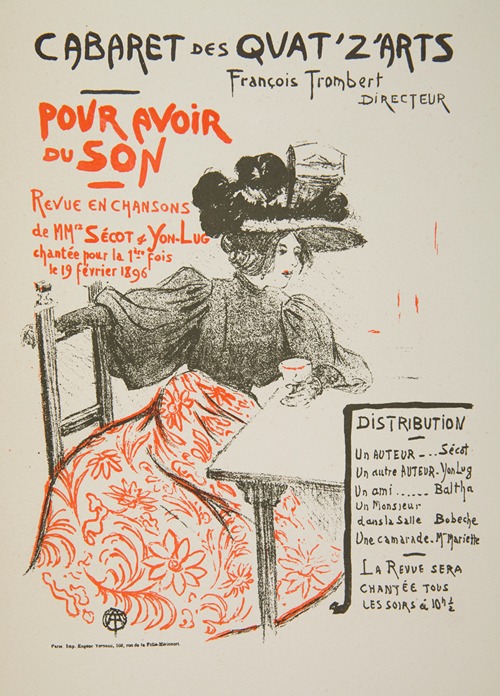 CABARET DES QUAT'Z'ARTS
François Trombert
DIRECTEUR
POUR AVOIR
DU SON
REVUE EN CHANSONS
de MMrs SÉCOT & YON-LUG
chantée pour la 1ère fois
le 19 février 1896
DISTRIBUTION
Un AUTEUR - .. Sécot
Un autre AUTEUR - Yon Lug
Un ami ...... Baltha
Un Monsieur
dans la Salle Bobeche
Une camarade - Me Mariette
LA REVUE SERA
CHANTÉE TOUS
LES SOIRS à 10h ½
Paris. Imp. Eugène Verneau, 108, rue de la Folie-Méricourt.